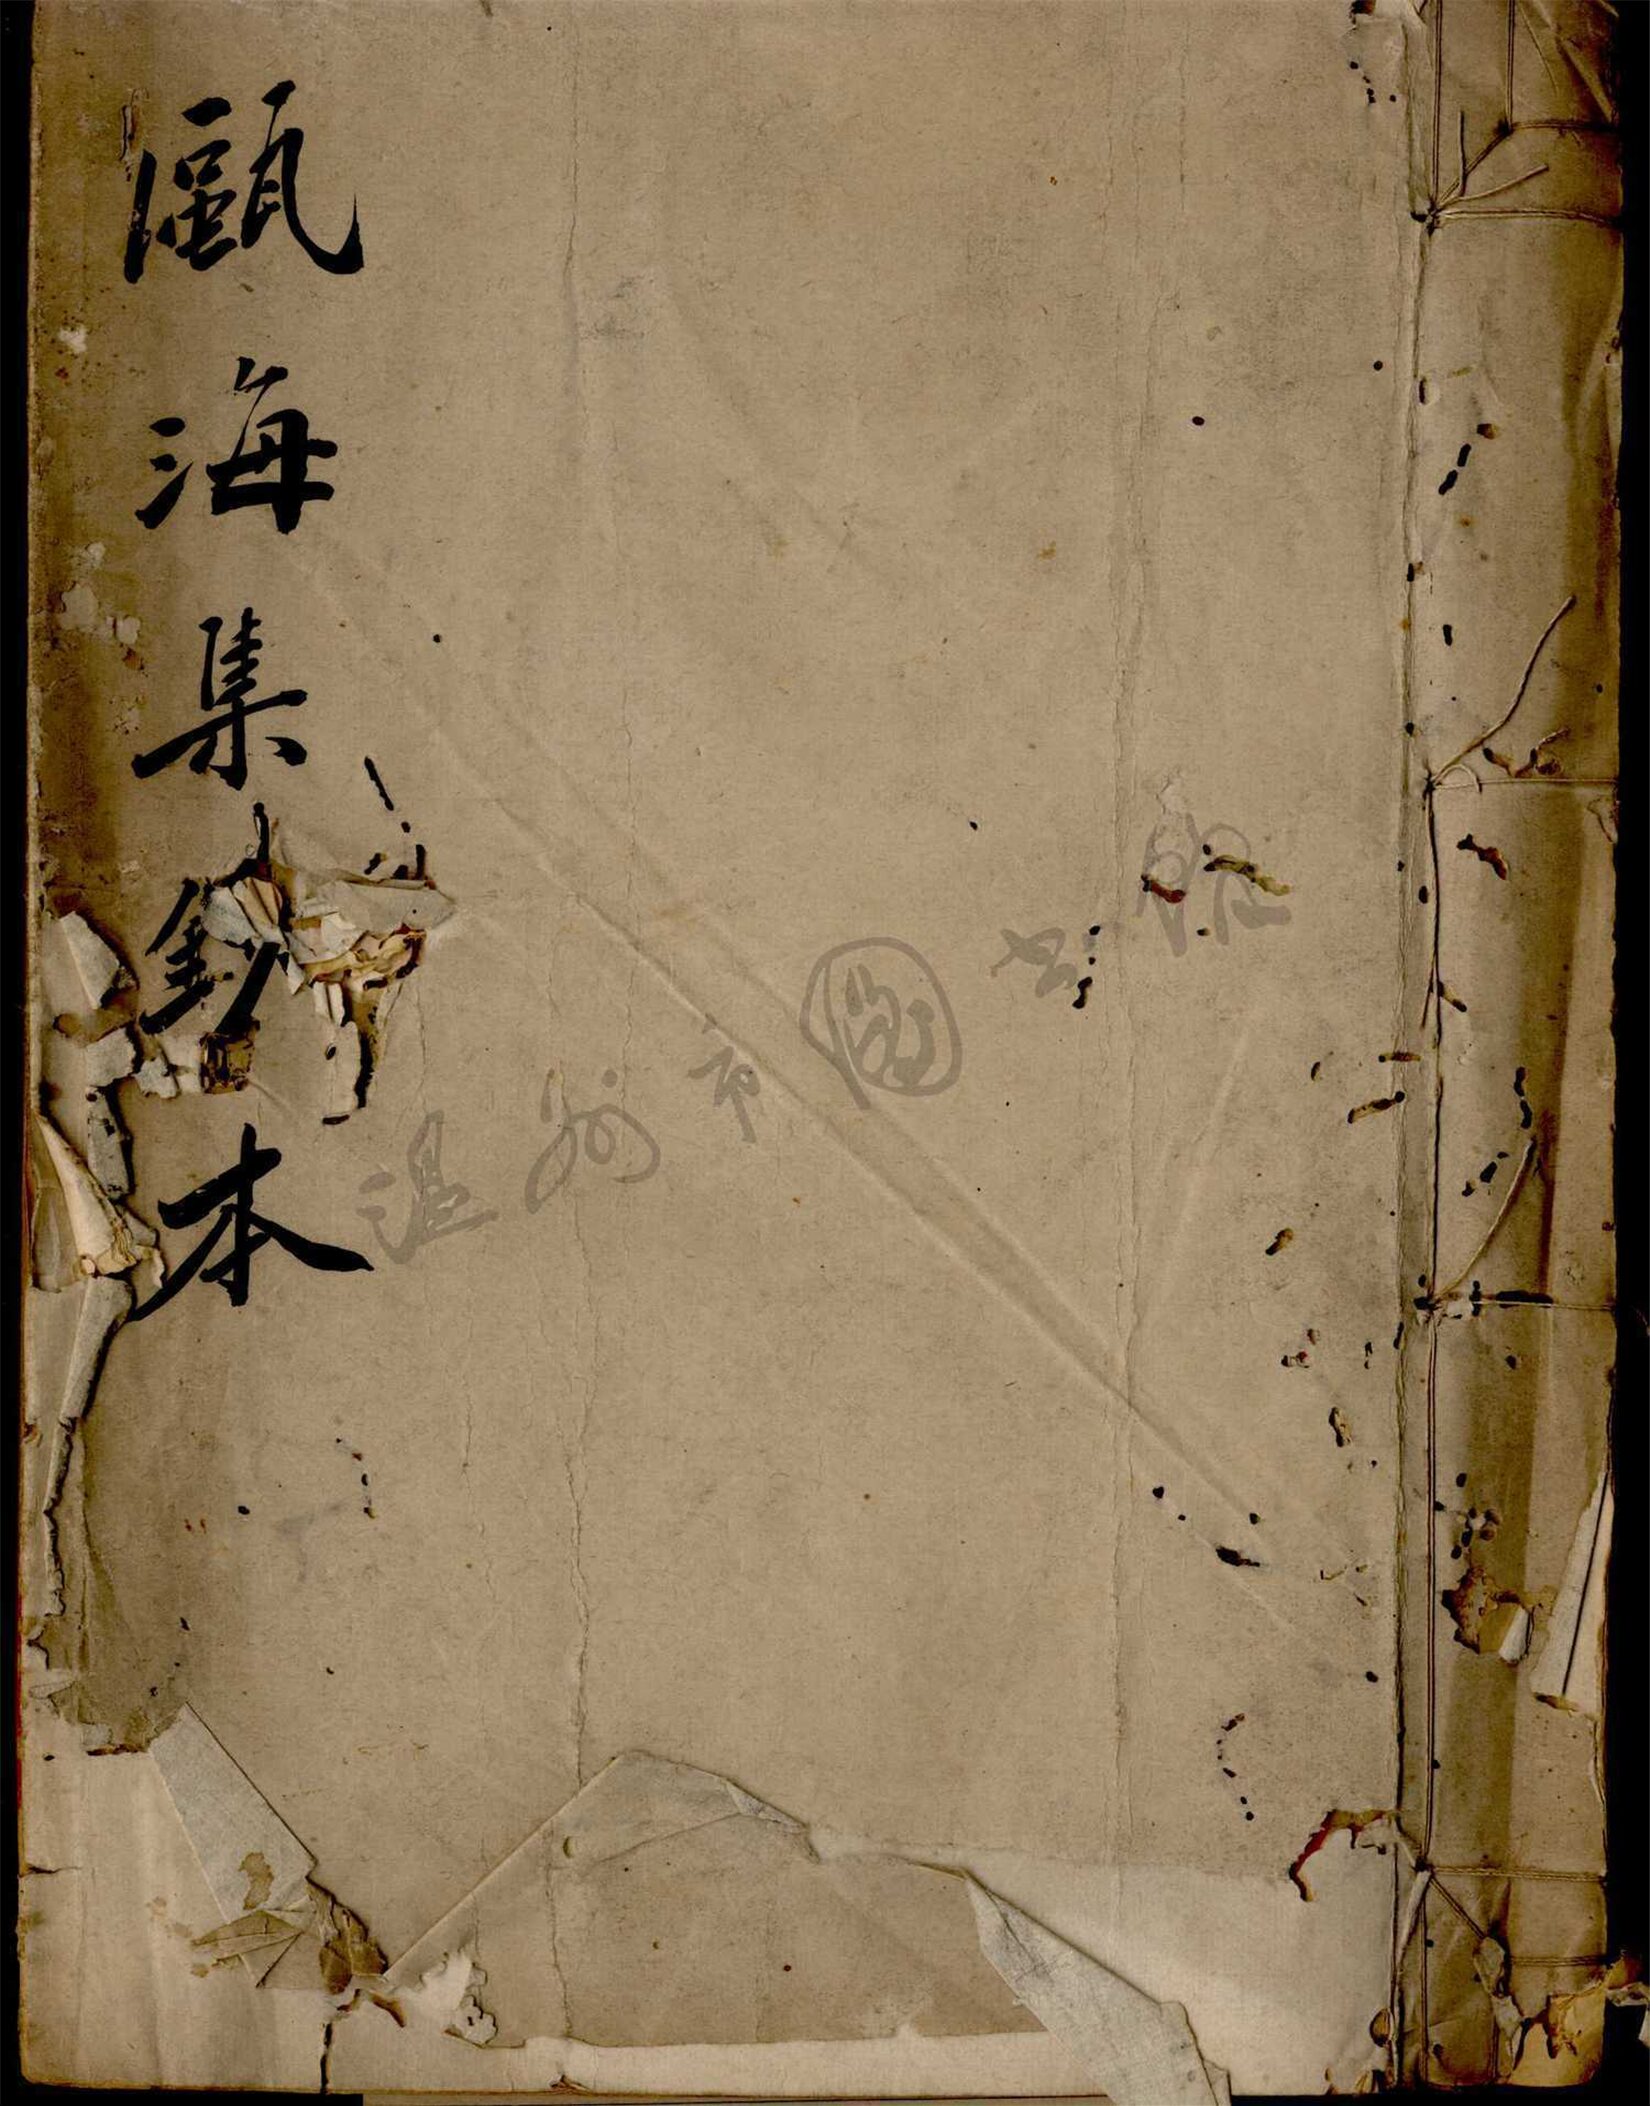 甌海集鈔本
温州市圖书馆